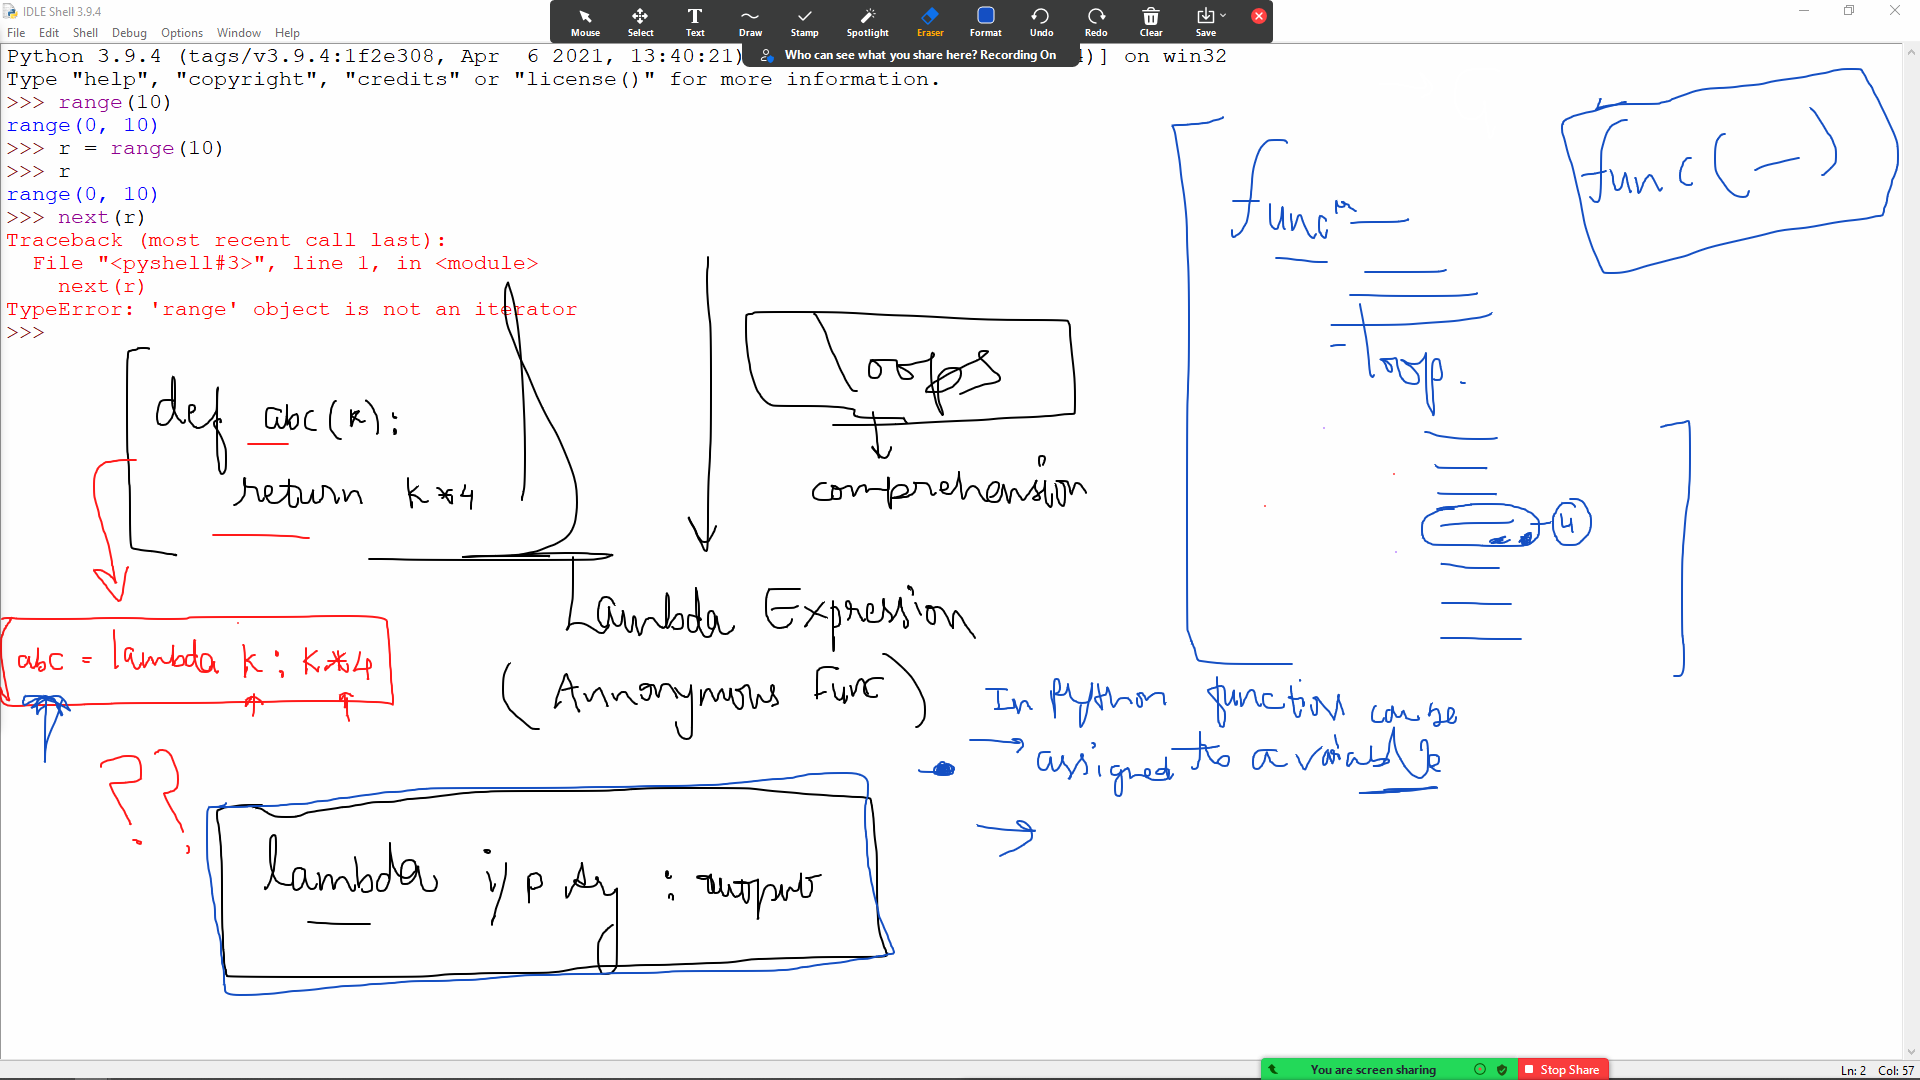 IDLE Shell 3.9.4
File Edit Shell Debug Options Window Help
Mouse Select Text Draw Stamp Spotlight Eraser Format Undo Redo Clear Save
Who can see what you share here? Recording On
Python 3.9.4 (tags/v3.9.4:1f2e308, Apr  6 2021, 13:40:21) 4)] on win32
Type "help", "copyright", "credits" or "license()" for more information.
>>> range(10)
range(0, 10)
>>> r = range(10)
>>> r
range(0, 10)
>>> next(r)
Traceback (most recent call last):
  File "<pyshell#3>", line 1, in <module>
    next(r)
TypeError: 'range' object is not an iterator
>>>
def abc(k):
return k*4
abc = lambda k : k*4
??
loops
comprehension
Lambda Expression
(Annonymous Func)
lambda i/p : output
func
loop.
4
func(—)
In Python function can be
assigned to a variable
You are screen sharing Stop Share
Ln: 2 Col: 57